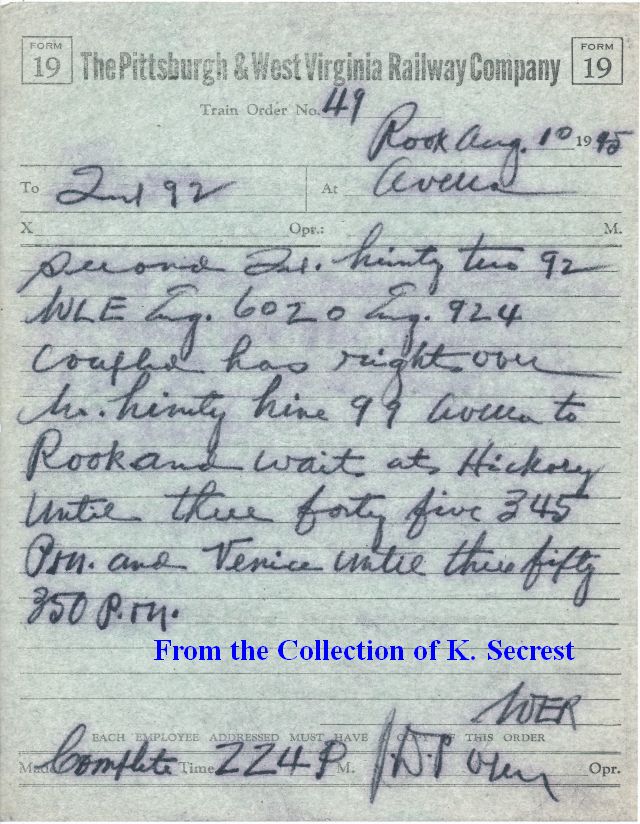 FORM 19 The Pittsburgh & West Virginia Railway Company FORM 19
Train Order No. 49
Rook Aug. 10 1945
To 2nd 92 At Avella
X Opr.: M.
Second No. ninty two 92
WLE Eng. 6020 Eng. 924
Coupled has right over
No. ninty nine 99 Avella to
Rook and wait at Hickory
until three forty five 345
P.M. and Venice until three fifty
350 P.M.
From the Collection of K. Secrest
WER
EACH EMPLOYEE ADDRESSED MUST HAVE A COPY OF THIS ORDER
Made Complete Time 224 P M. Opr.